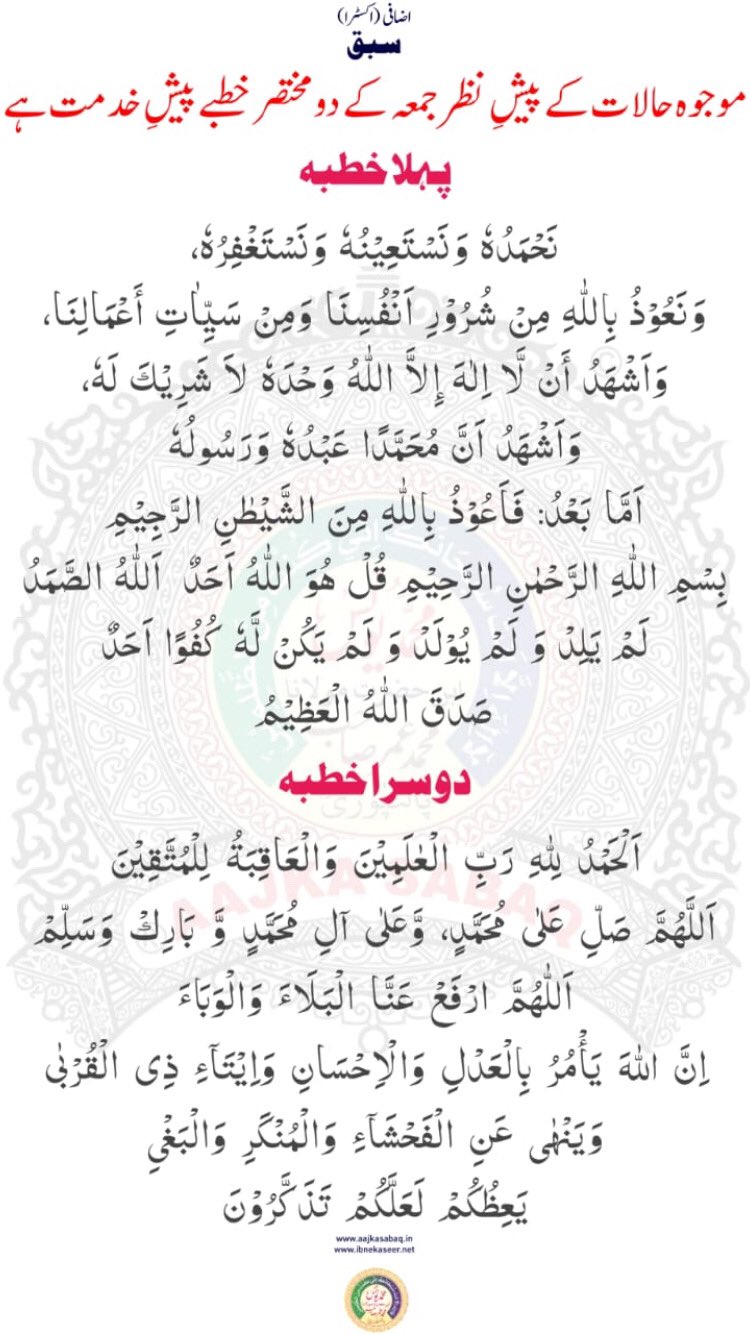 اضافی (اکسٹرا)
سبق
موجوہ حالات کے پیشِ نظر جمعہ کے دو مختصر خطبے پیشِ خدمت ہے
پہلا خطبه
نَحْمَدُهٗ وَنَسْتَعِيْنُهٗ وَنَسْتَغْفِرُهٗ،
وَنَعُوْذُ بِاللّٰهِ مِنْ شُرُوْرِ اَنْفُسِنَا وَمِنْ سَيِّاٰتِ أَعْمَالِنَا،
وَاَشْهَدُ أَنْ لَّا اِلٰهَ إِلاَّ اللّٰهُ وَحْدَهٗ لاَ شَرِيْكَ لَهٗ،
وَاَشْهَدُ اَنَّ مُحَمَّدًا عَبْدُهٗ وَرَسُولُهٗ
اَمَّا بَعْدُ: فَاَعُوْذُ بِاللّٰهِ مِنَ الشَّيْطٰنِ الرَّجِيْمِ
بِسْمِ اللّٰهِ الرَّحْمٰنِ الرَّحِيْمِ قُلْ هُوَ اللّٰهُ اَحَدٌ اَللّٰهُ الصَّمَدُ
لَمْ يَلِدْ وَ لَمْ يُوْلَدْ وَ لَمْ يَكُنْ لَّهٗ كُفُوًا اَحَدٌ
صَدَقَ اللّٰهُ الْعَظِيْمُ
دوسرا خطبه
اَلْحَمْدُ لِلّٰهِ رَبِّ الْعٰلَمِيْنَ وَالْعَاقِبَةُ لِلْمُتَّقِيْنَ
اَللّٰهُمَّ صَلِّ عَلٰى مُحَمَّدٍ، وَّعَلٰى آلِ مُحَمَّدٍ وَّ بَارِكْ وَسَلِّمْ
اَللّٰهُمَّ ارْفَعْ عَنَّا الْبَلَاءَ وَالْوَبَاءَ
اِنَّ اللّٰهَ يَأْمُرُ بِالْعَدْلِ وَالْاِحْسَانِ وَاِيْتَآءِ ذِى الْقُرْبٰى
وَيَنْهٰى عَنِ الْفَحْشَآءِ وَالْمُنْكَرِ وَالْبَغْيِ
يَعِظُكُمْ لَعَلَّكُمْ تَذَكَّرُوْنَ
AAJKA SABAQ
www.aajkasabaq.in
www.ibnekaseer.net